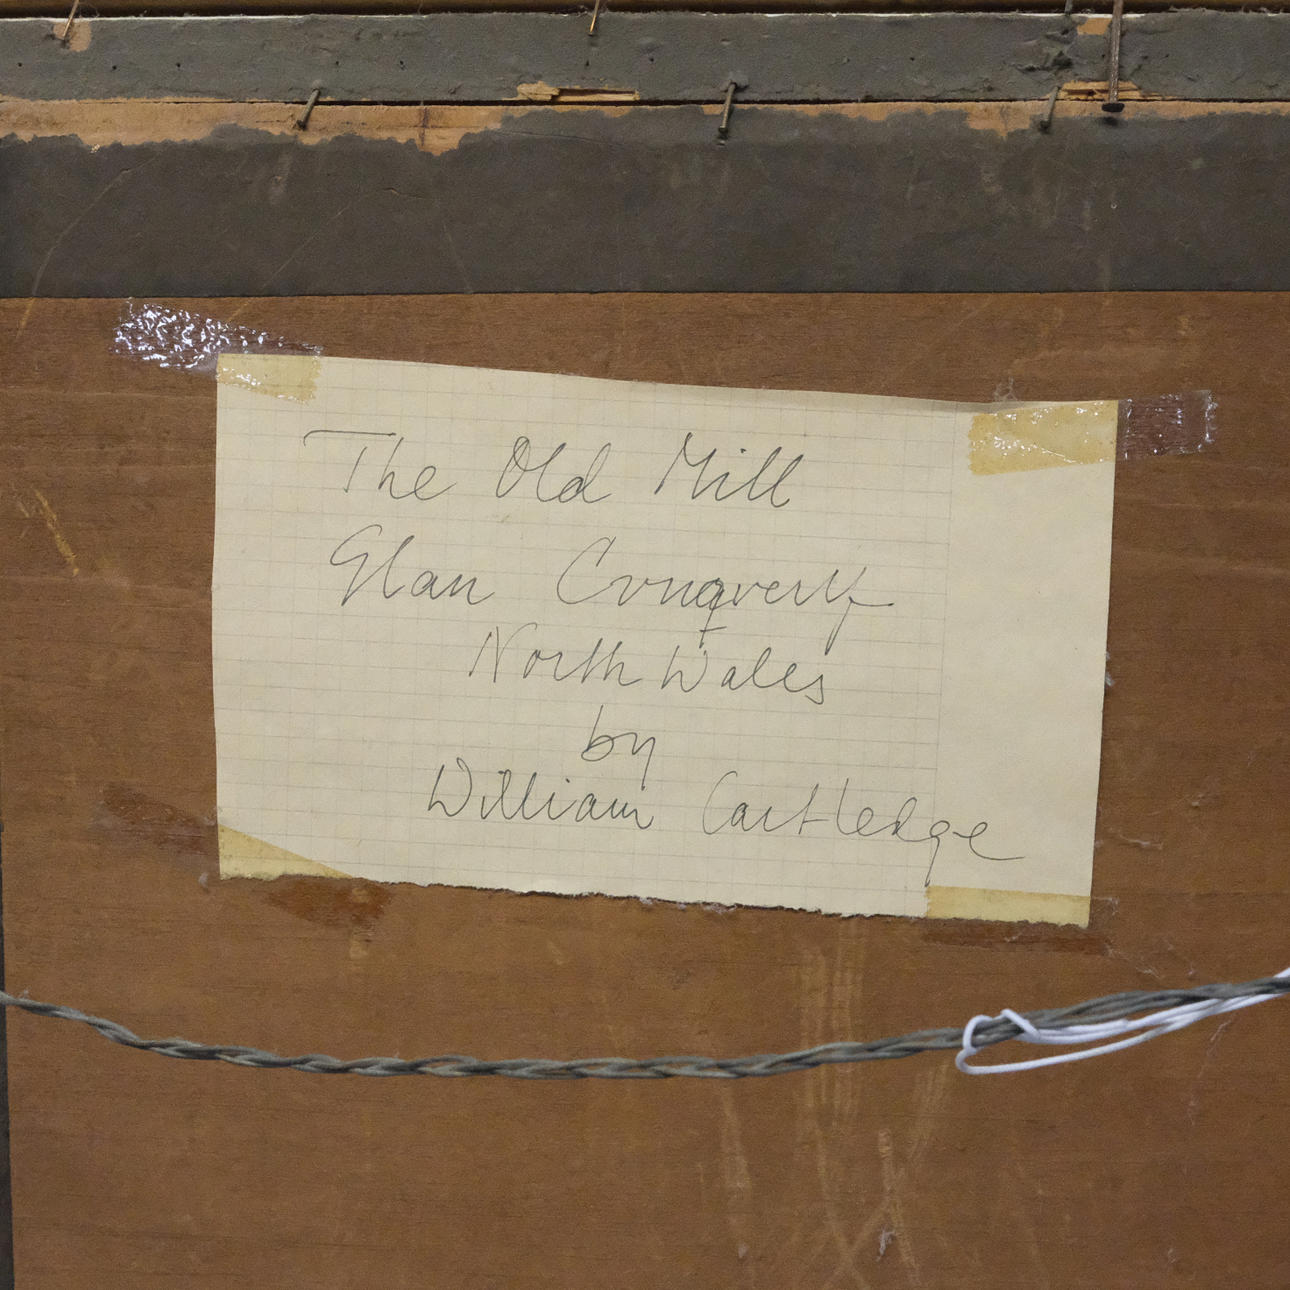 The Old Mill
Glan
North Wales
by
William Cartledge